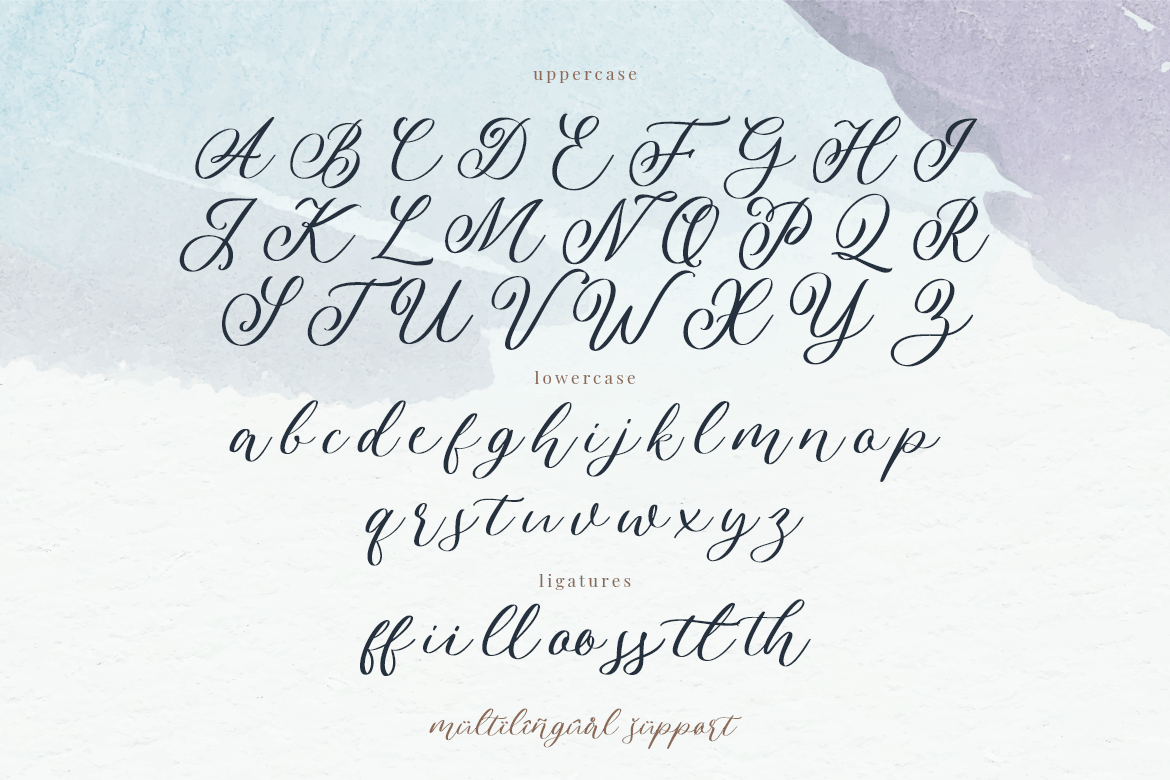 uppercase
A B C D E F G H I
J K L M N O P Q R
S T U V W X Y Z
lowercase
a b c d e f g h i j k l m n o p
q r s t u v w x y z
ligatures
ff ii ll oo ss tt th
mültïlîñgûål šüppört